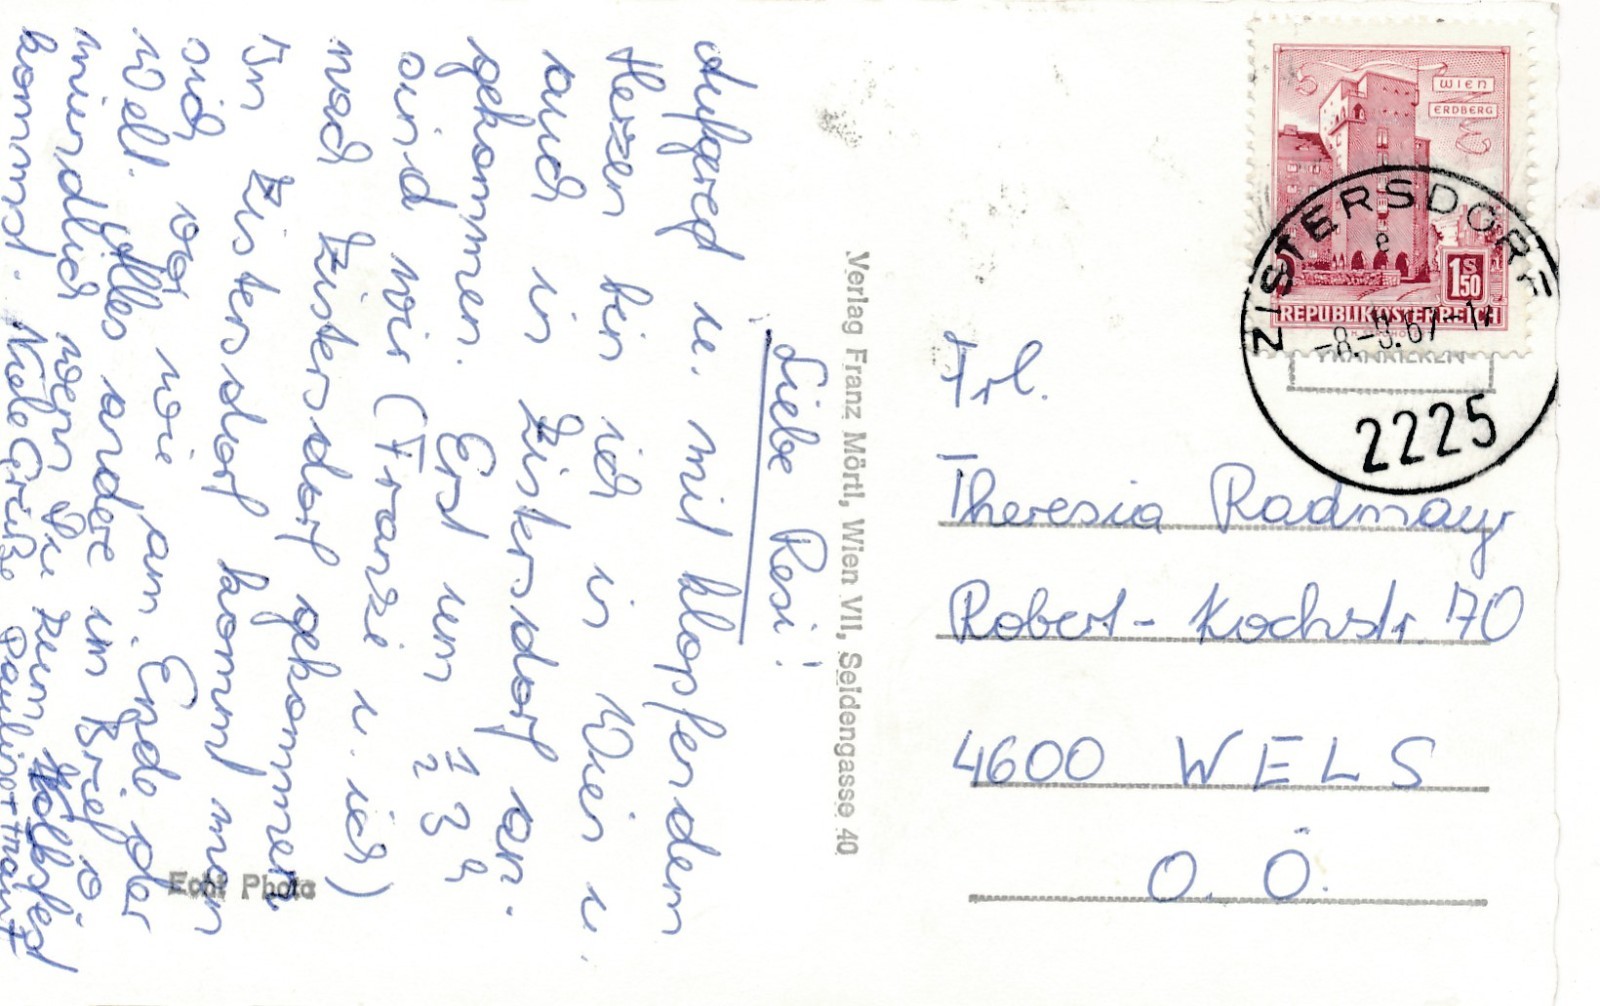 Liebe Resi!
Aufgeregt u. mit klopfendem
Herzen bin ich in Wien u.
auch in Zistersdorf an-
gekommen. Erst um 1/2 3 h
sind wir (Franzi u. ich)
nach Zistersdorf gekommen.
In Zistersdorf kommt man
sich vor wie am Ende der
Welt. Alles andere im Brief o.
mündlich wenn Du zum Volksfest
kommst. Viele Grüße
Verlag Franz Mörtl, Wien VII, Seidengasse 40
Echt Photo
WIEN
ERDBERG
1 S 50
REPUBLIK ÖSTERREICH
ZISTERSDORF
e
2225
FRANKIEREN
Frl.
Theresia Radmayr
Robert-Kochstr. 70
4600 WELS
O. Ö.